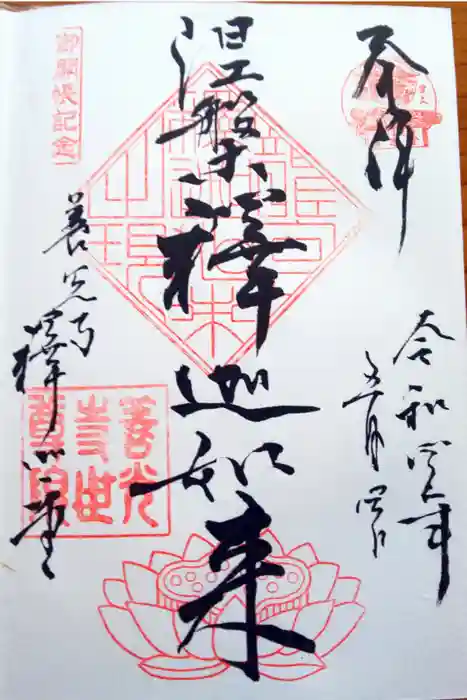 奉拝
令和四年
五月四日
涅槃釋迦如来
御開帳記念
善光寺釋迦堂
善光
寺世
尊院